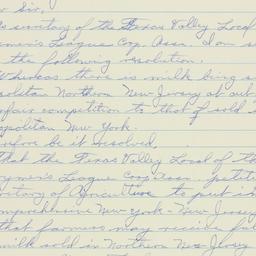 Sir,
secretary of the Texas Valley Local
League Co-op. Assn. I am s
the following resolution.
Whereas there is milk being s
Northern New Jersey at cut
fair competition to that of sold
politan New York.
fore be it resolved,
that the Texas Valley Local of th
rymen's League Co-op. Assn. petiti
retary of Agriculture to put i
omprehensive New York - New Jersey
that farmers may receive full
milk sold in Northern New Jersey